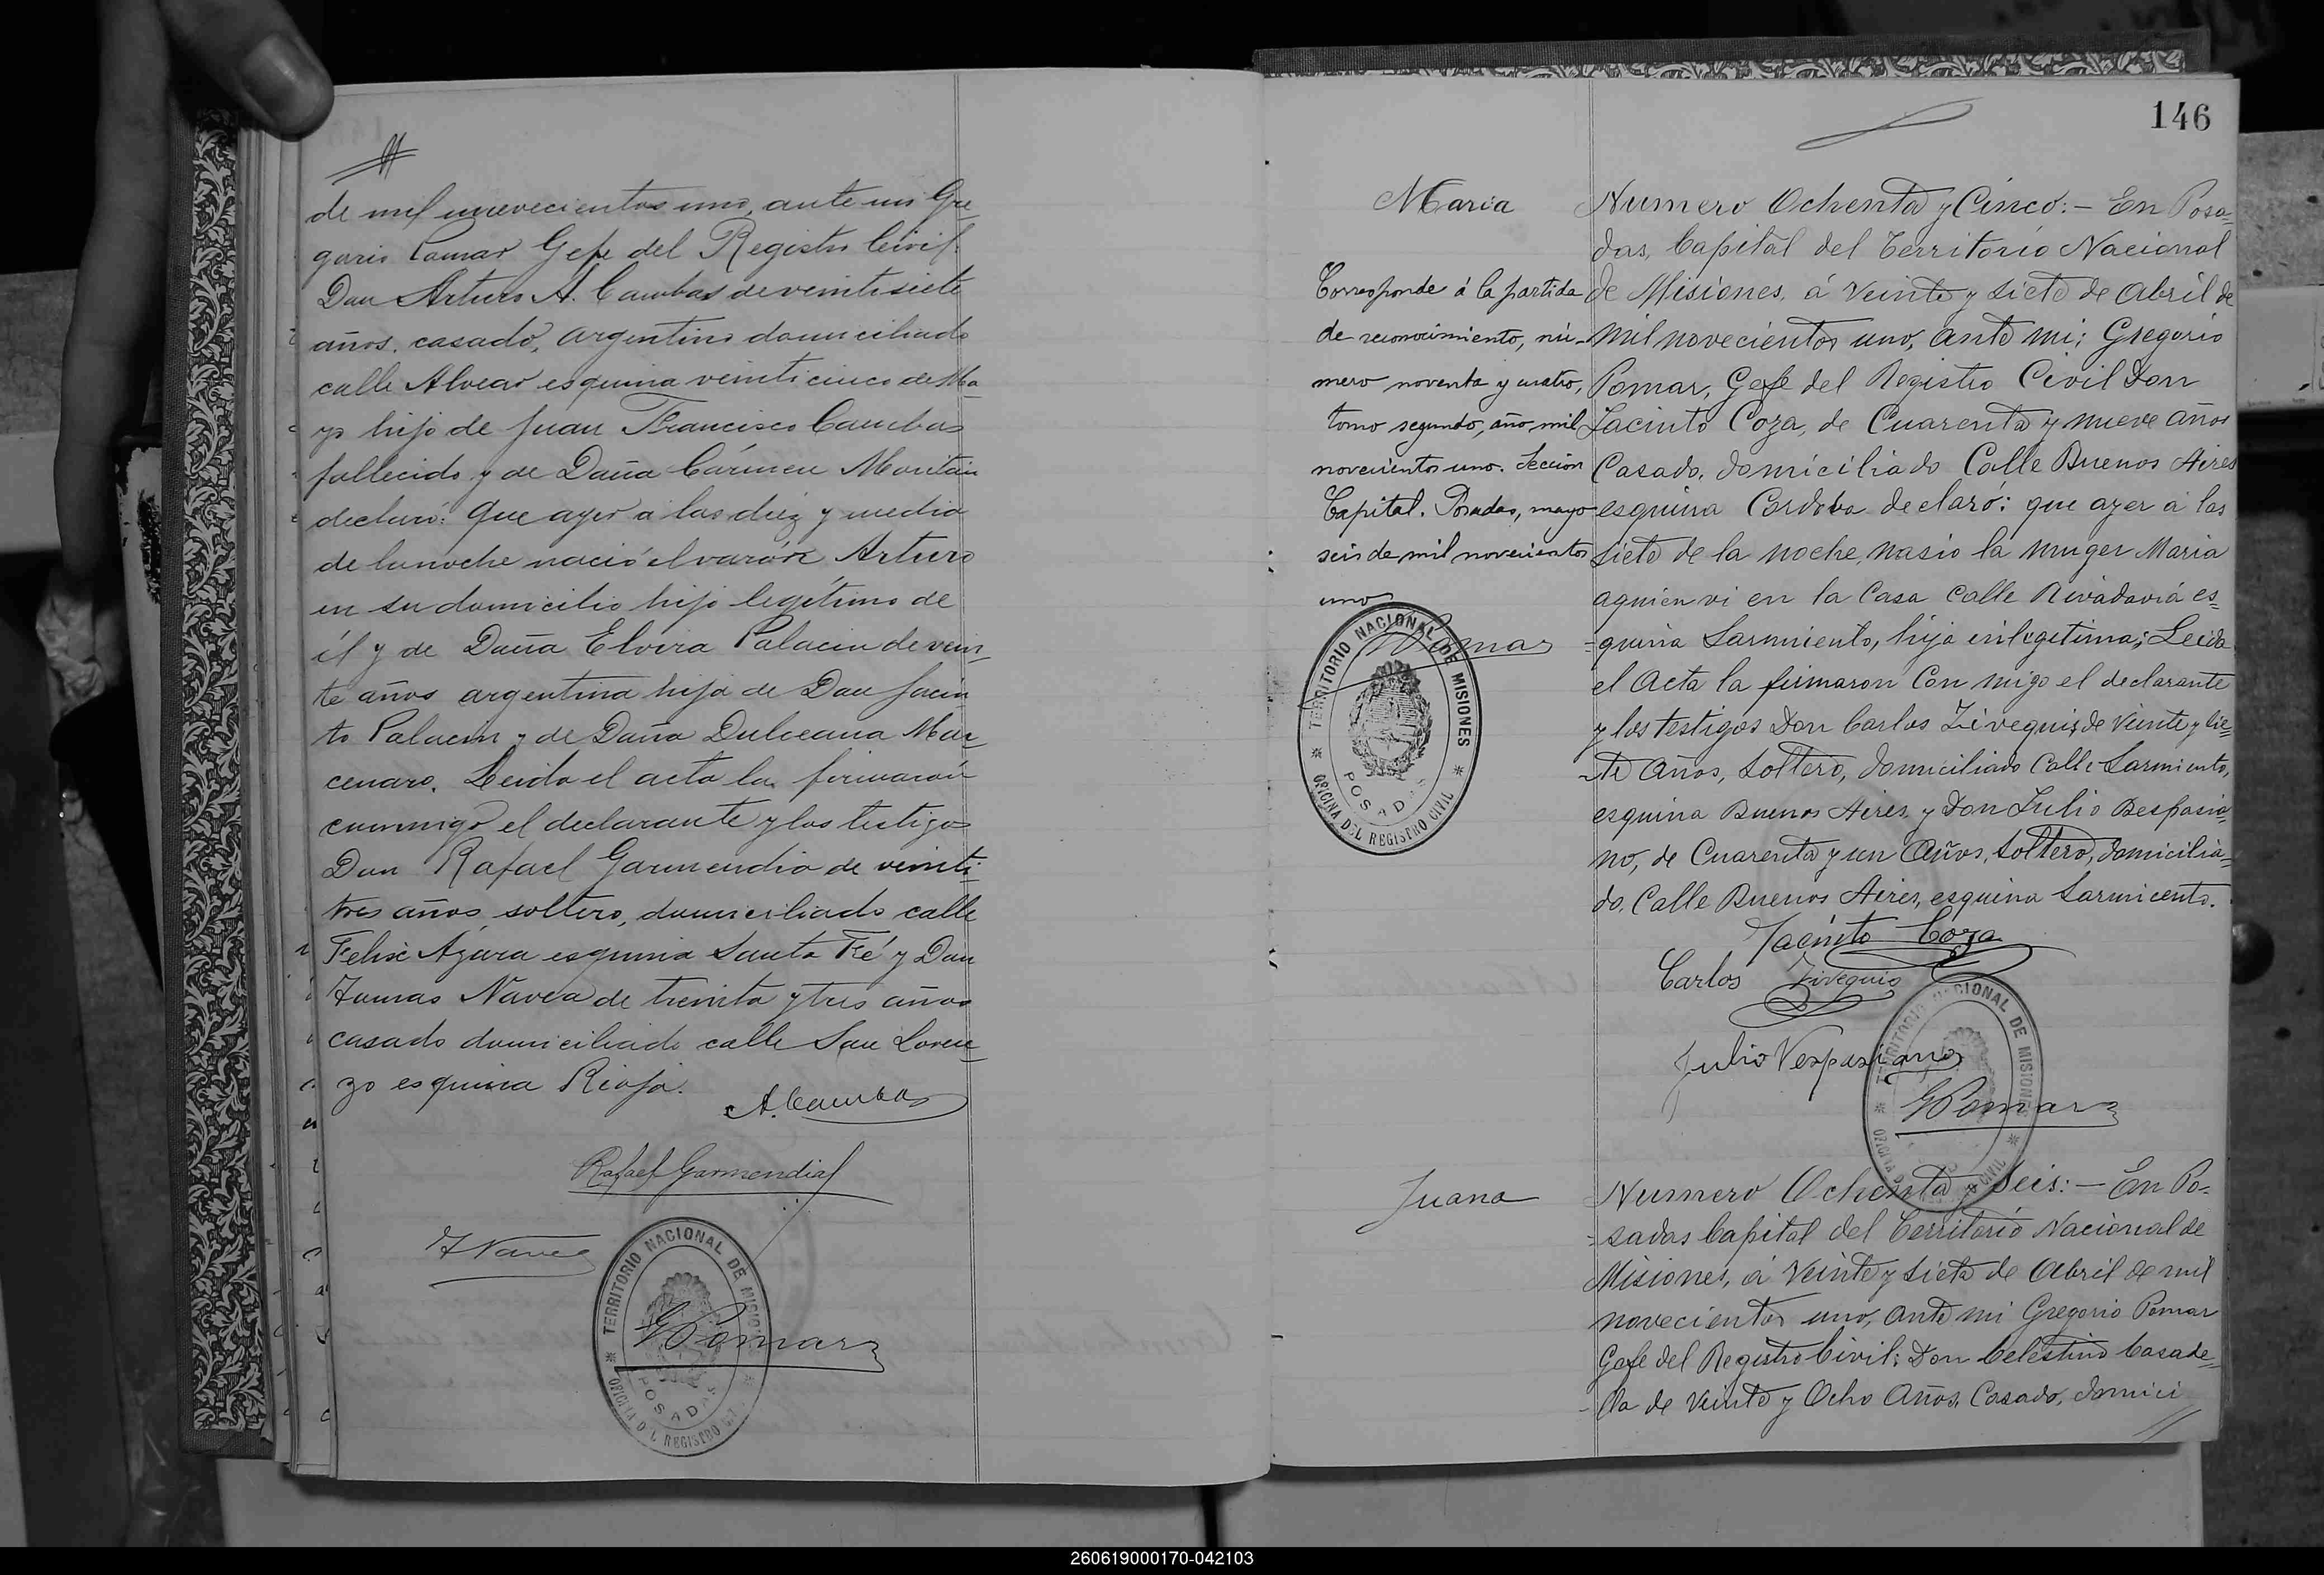 de mil nuevecientos uno, ante mi Gre_
gorio Pomar Gefe del Registro Civil.
Don Arturo A. Cambas de veintisiete
años, casado, argentino domiciliado
calle Alvear esquina veinticinco de Ma_
yo hijo de Juan Francisco Cambas
fallecido y de Doña Cármen Moritán
declaró: Que ayer a las diez y media
de la noche nació el varón Arturo
en su domicilio hijo legítimo de
él y de Doña Elvira Palacin de vein_
te años argentina hija de Don Jacin
to Palacin y de Doña Dulceana Mar_
cenaro. Leida el acta la firmarón
cunmigo el declarante y los testigos
Don Rafael Garmendia de veinti_
tres años, soltero, domiciliado calle
Felix Azara esquina Santa Fé y Don
Tomas Navea de treinta y tres años
casado domiciliado calle San Loren_
zo esquina Rioja.
A. Cambas
Rafael Garmendia
T Navea
TERRITORIO NACIONAL DE MISIONES
POSADAS
OFICINA DEL REGISTRO CIVIL
GPomar
146
Maria
Corresponde á la partida
de reconocimiento, nú-
mero noventa y cuatro,
tomo segundo, año mil
novecientos uno. Seccion
Capital. Posadas, mayo
seis de mil novecientos
uno
Pomar
TERRITORIO NACIONAL DE MISIONES
POSADAS
OFICINA DEL REGISTRO CIVIL
Numero Ochenta y Cinco:- En Posa=
das, Capital del Territorio Nacional
de Misiones, á Veinte y Siete de Abril de
mil novecientos uno, ante mi; Gregorio
Pomar, Gefe del Registro Civil Don
Jacinto Coza, de Cuarenta y nueve años
Casado, domiciliado Calle Buenos Aires
esquina Cordoba declaró: que ayer á las
siete de la noche, nasio la muger Maria
aquien vi en la Casa calle Rivadavia es=
=quina Sarmiento, hija inlegetima; Leida
el Acta la firmaron Con migo el declarante
y los testigos Don Carlos Ziveguis de Veinte y Sie=
-te Años, Soltero, domiciliado Calle Sarmiento,
esquina Buenos Aires, y Don Julio Bespasia=
no, de Cuarenta y un Años, Soltero, domicilia=
do, Calle Buenos Aires, esquina Sarmiento.
Jacinto Coza
Carlos Ziveguis
Julio Vespasiano
TERRITORIO NACIONAL DE MISIONES
OFICINA CIVIL
GPomar
Juana
Numero Ochenta y Seis:- En Po-
=sadas Capital del Territorio Nacional de
Misiones, á Veinte y Siete de Abril de mil
novecientos uno, ante mi Gregorio Pomar
Gefe del Registro Civil; Don Celestino Casade=
-lla de Veinte y Ocho Años, Casado, domici
260619000170-042103